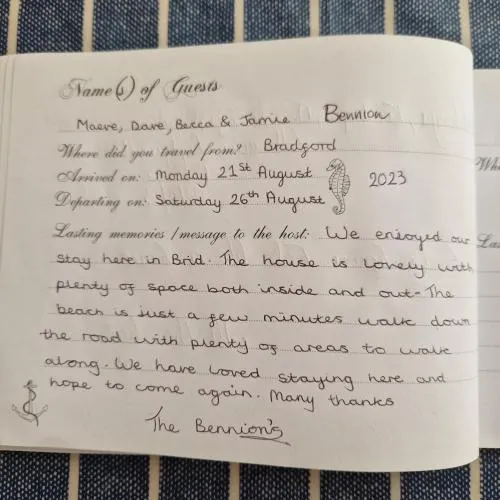 Name(s) of Guests
Maeve, Dave, Becca & Jamie Bennion
Where did you travel from? Bradgord
Arrived on: Monday 21st August 2023
Departing on: Saturday 26th August
Lasting memories / message to the host: We enjoyed our
stay here in Brid. The house is lovely with
plenty of space both inside and out. The
beach is just a few minutes walk down
the road with plenty of areas to walk
along. We have loved staying here and
hope to come again. Many thanks
The Bennion's